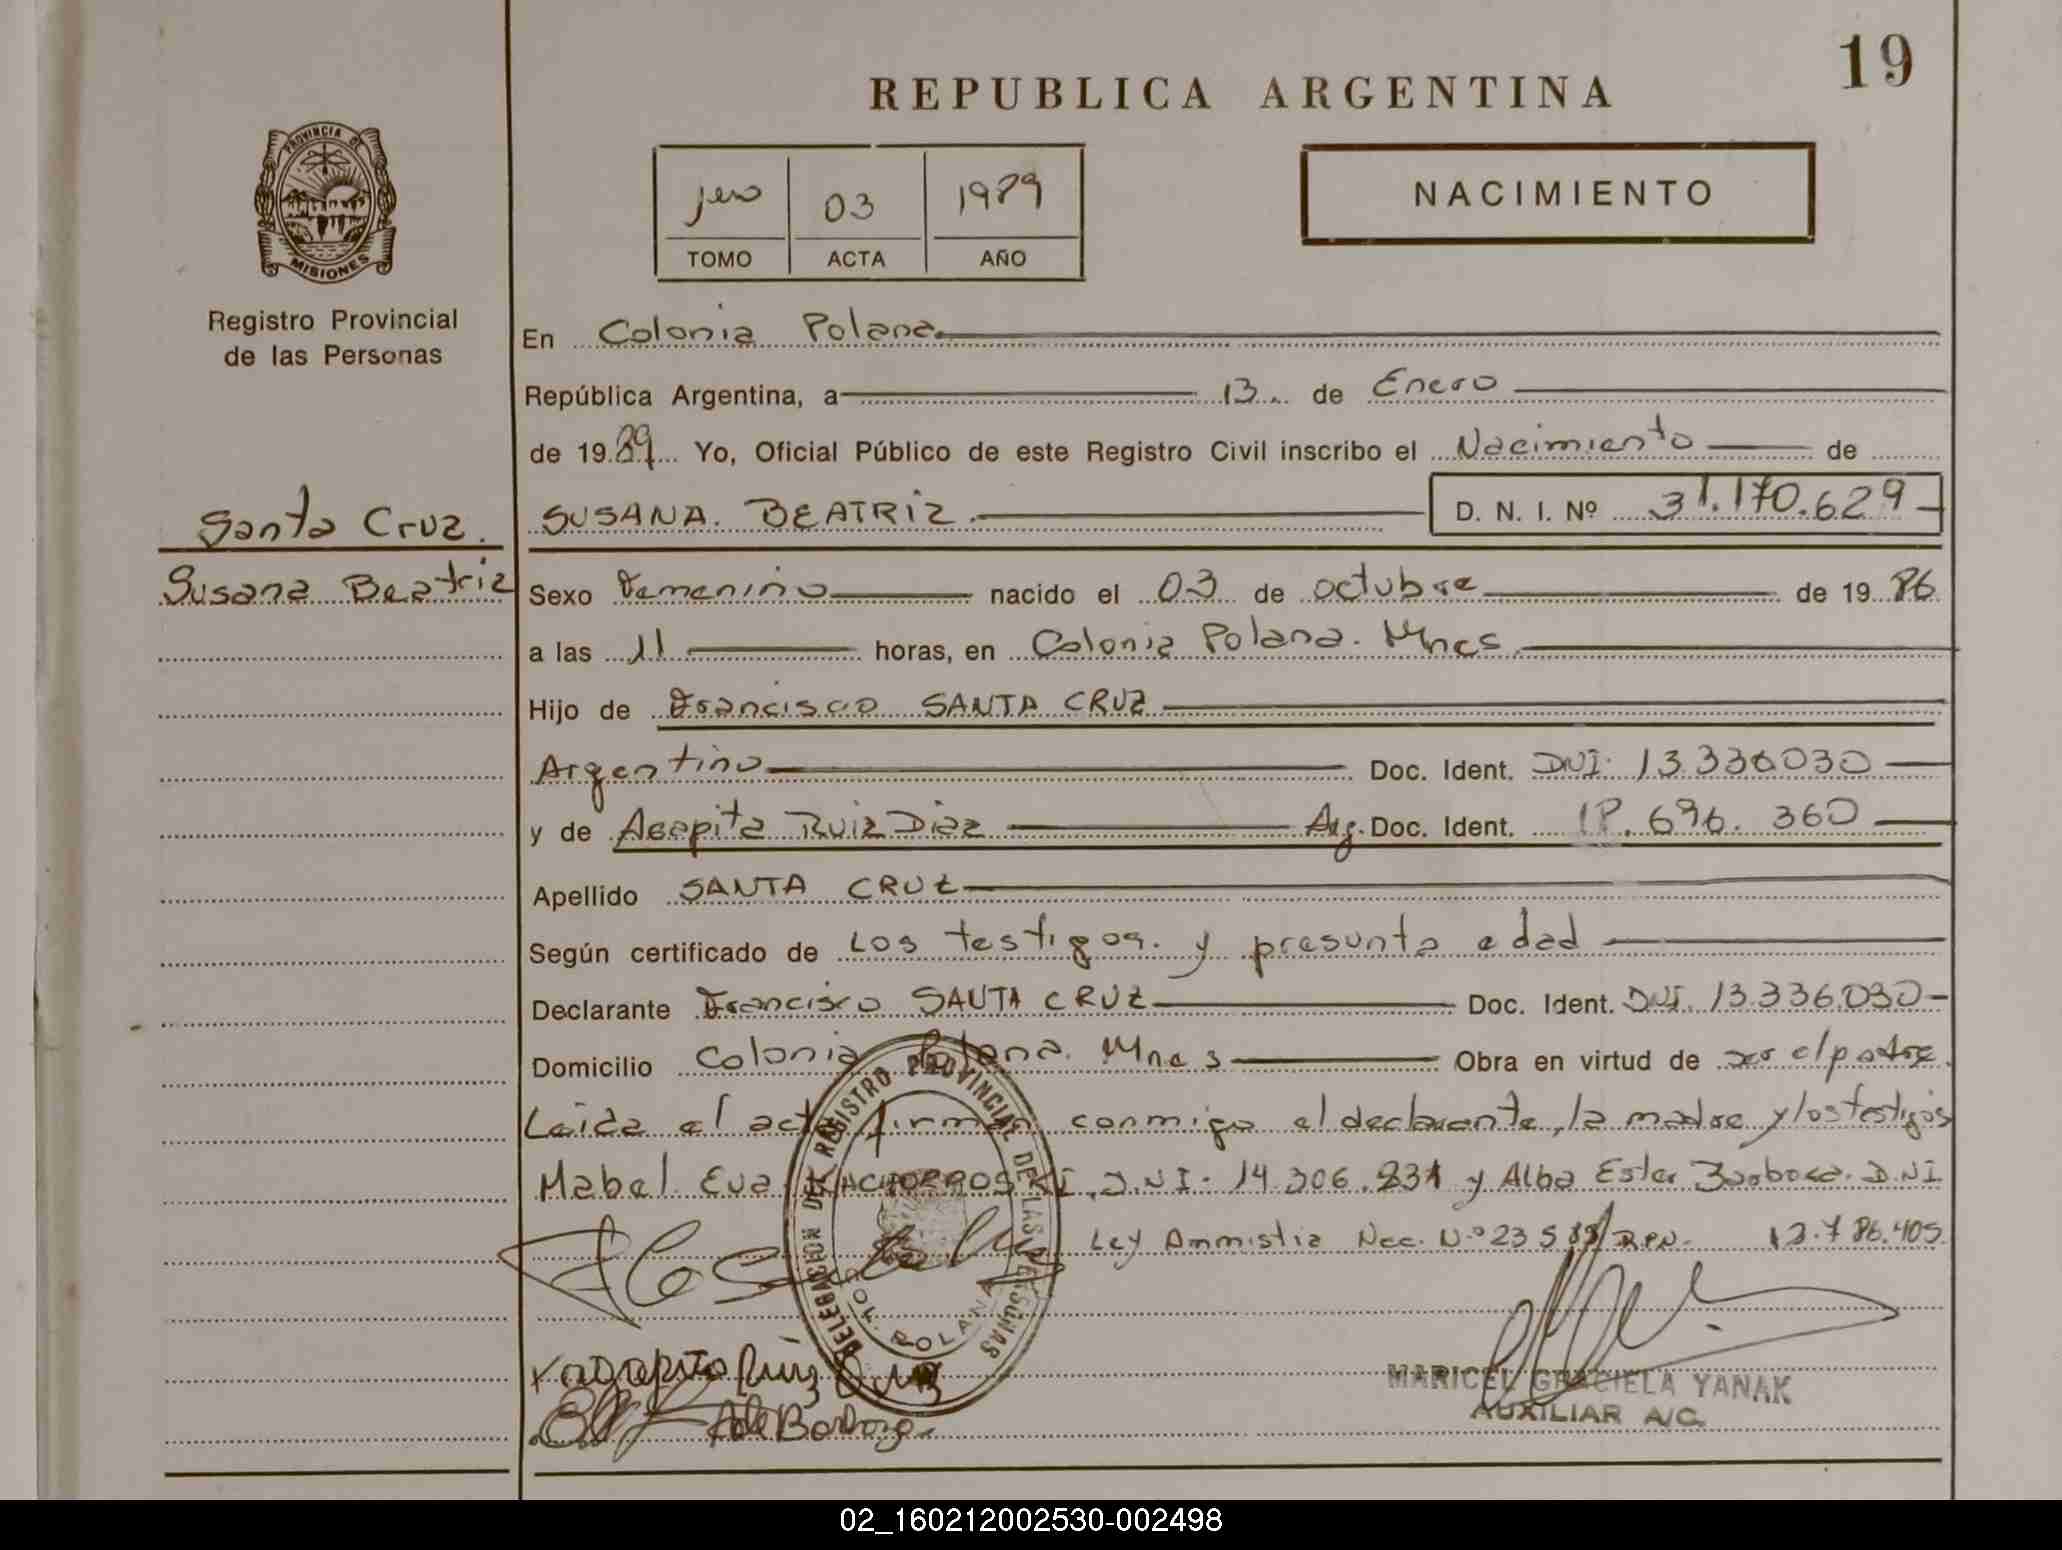 19
REPUBLICA ARGENTINA
PROVINCIA DE
MISIONES
Registro Provincial
de las Personas
1ero 03 1989
TOMO ACTA AÑO
NACIMIENTO
En Colonia Polana
República Argentina, a 13 de Enero
de 1989 Yo, Oficial Público de este Registro Civil inscribo el Nacimiento de
Santa Cruz.
SUSANA. BEATRIZ. D. N. I. Nº 31.170.629
Susana Beatriz
Sexo Femenino nacido el 03 de octubre de 1986
a las 11 horas, en Colonia Polana. Mnes
Hijo de Francisco SANTA CRUZ
Argentino Doc. Ident. DNI. 13.336030
y de Agapita Ruiz Diaz Arg. Doc. Ident. 696. 360
Apellido SANTA CRUZ
Según certificado de Los testigos. y presunta edad
Declarante Francisco SANTA CRUZ Doc. Ident. DNI. 13.336.030
Domicilio Colonia Polana. Mnes Obra en virtud de ser el padre.
Leida el acta firman conmigo el declarante, la madre y los testigos
Mabel Eva D.N.I. 14.306.231 y Alba Ester Barboza. D.NI
Ley Ammistia Nac. Nº 23 RPN. 12.786.405
DELEGACION DEL REGISTRO PROVINCIAL DE LAS PERSONAS
COL. POLANA
Ruiz
MARICEL GRACIELA YANAK
AUXILIAR A/C.
Barboza
02_160212002530-002498